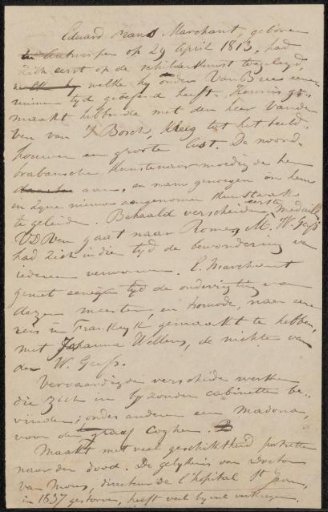 Eduard Frans Marchant, geboren
te Antwerpen op 29 April 1813, had
zich eerst op de schilderkunst toegelegd
welke hy onder Van Bree eenen
ruimen tyd geoefend heeft. Kennis ge-
maakt hebbende met den heer Vander
Ven van 'S Bosch, kreeg tot het beeld-
houwen een groote lust. De noord-
brabansche kunstenaar moedigde hem
aan, en nam genoegen om hem
in zyne nieuwe aangenomen kunsttak
te geleiden. Behaald verscheiden eerste medaille
VDVen gaat naar Romen, M. W. Geefs
had zich in dien tyd de bewondering van
iederen verworven. E. Marchant
geniet eenigen tyd de onderrigting van
dezen meester, en trouwde, naer eene
reis in Frankryk gemaakt te hebben,
met Johanna Willems, de nichte van
den W. Geefs.
Vervaardigde verscheide werken
die zich in byzondere cabinetten be-
vinden; onder anderen een Madona,
voor den graaf Coghen.
Maakt met veel geschiktheid portretten
naer den dood. De gelykenis van doctor
van Mons, directeur de l'hôpital St Jean,
in 1837 gestorven, heeft veel byval